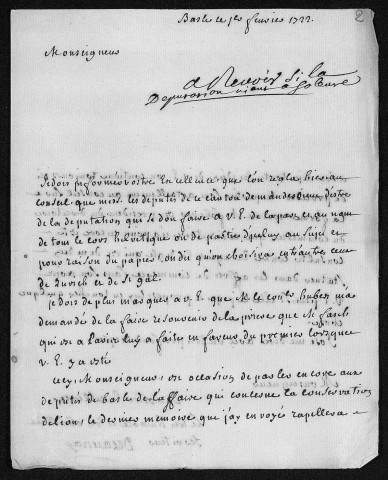 2
Basle ce 1er fevrier 1722.
Monseigneur
a Revoir si la
Deputation vient a Soleure
Je dois informer vostre Excellence que l'on regla hier au
conseil que mess. les deputés de ce canton demanderoient d'estre
de la deputation qui se doit faire a V. E. de la part et au nom
de tout le cors helvetique ou de partie d'iceluy au sujet et
pour raison du papier, on dit qu'on choisira entr'autre ceux
de Zurich et de St gal.
je dois de plus marquer a V. E. que M. le conte huber m'a
demandé de la faire resouvenir de la priere que M. fasch
qui est a Paris luy a faite en faveur du premier lorsque
V. E. y a esté
cecy, Monseigneur, est occasion de parler encore aux
deputés de basle de l'affaire qui concerne la conservation
de lion, le dernier memoire que j'ay envoyé rapellera